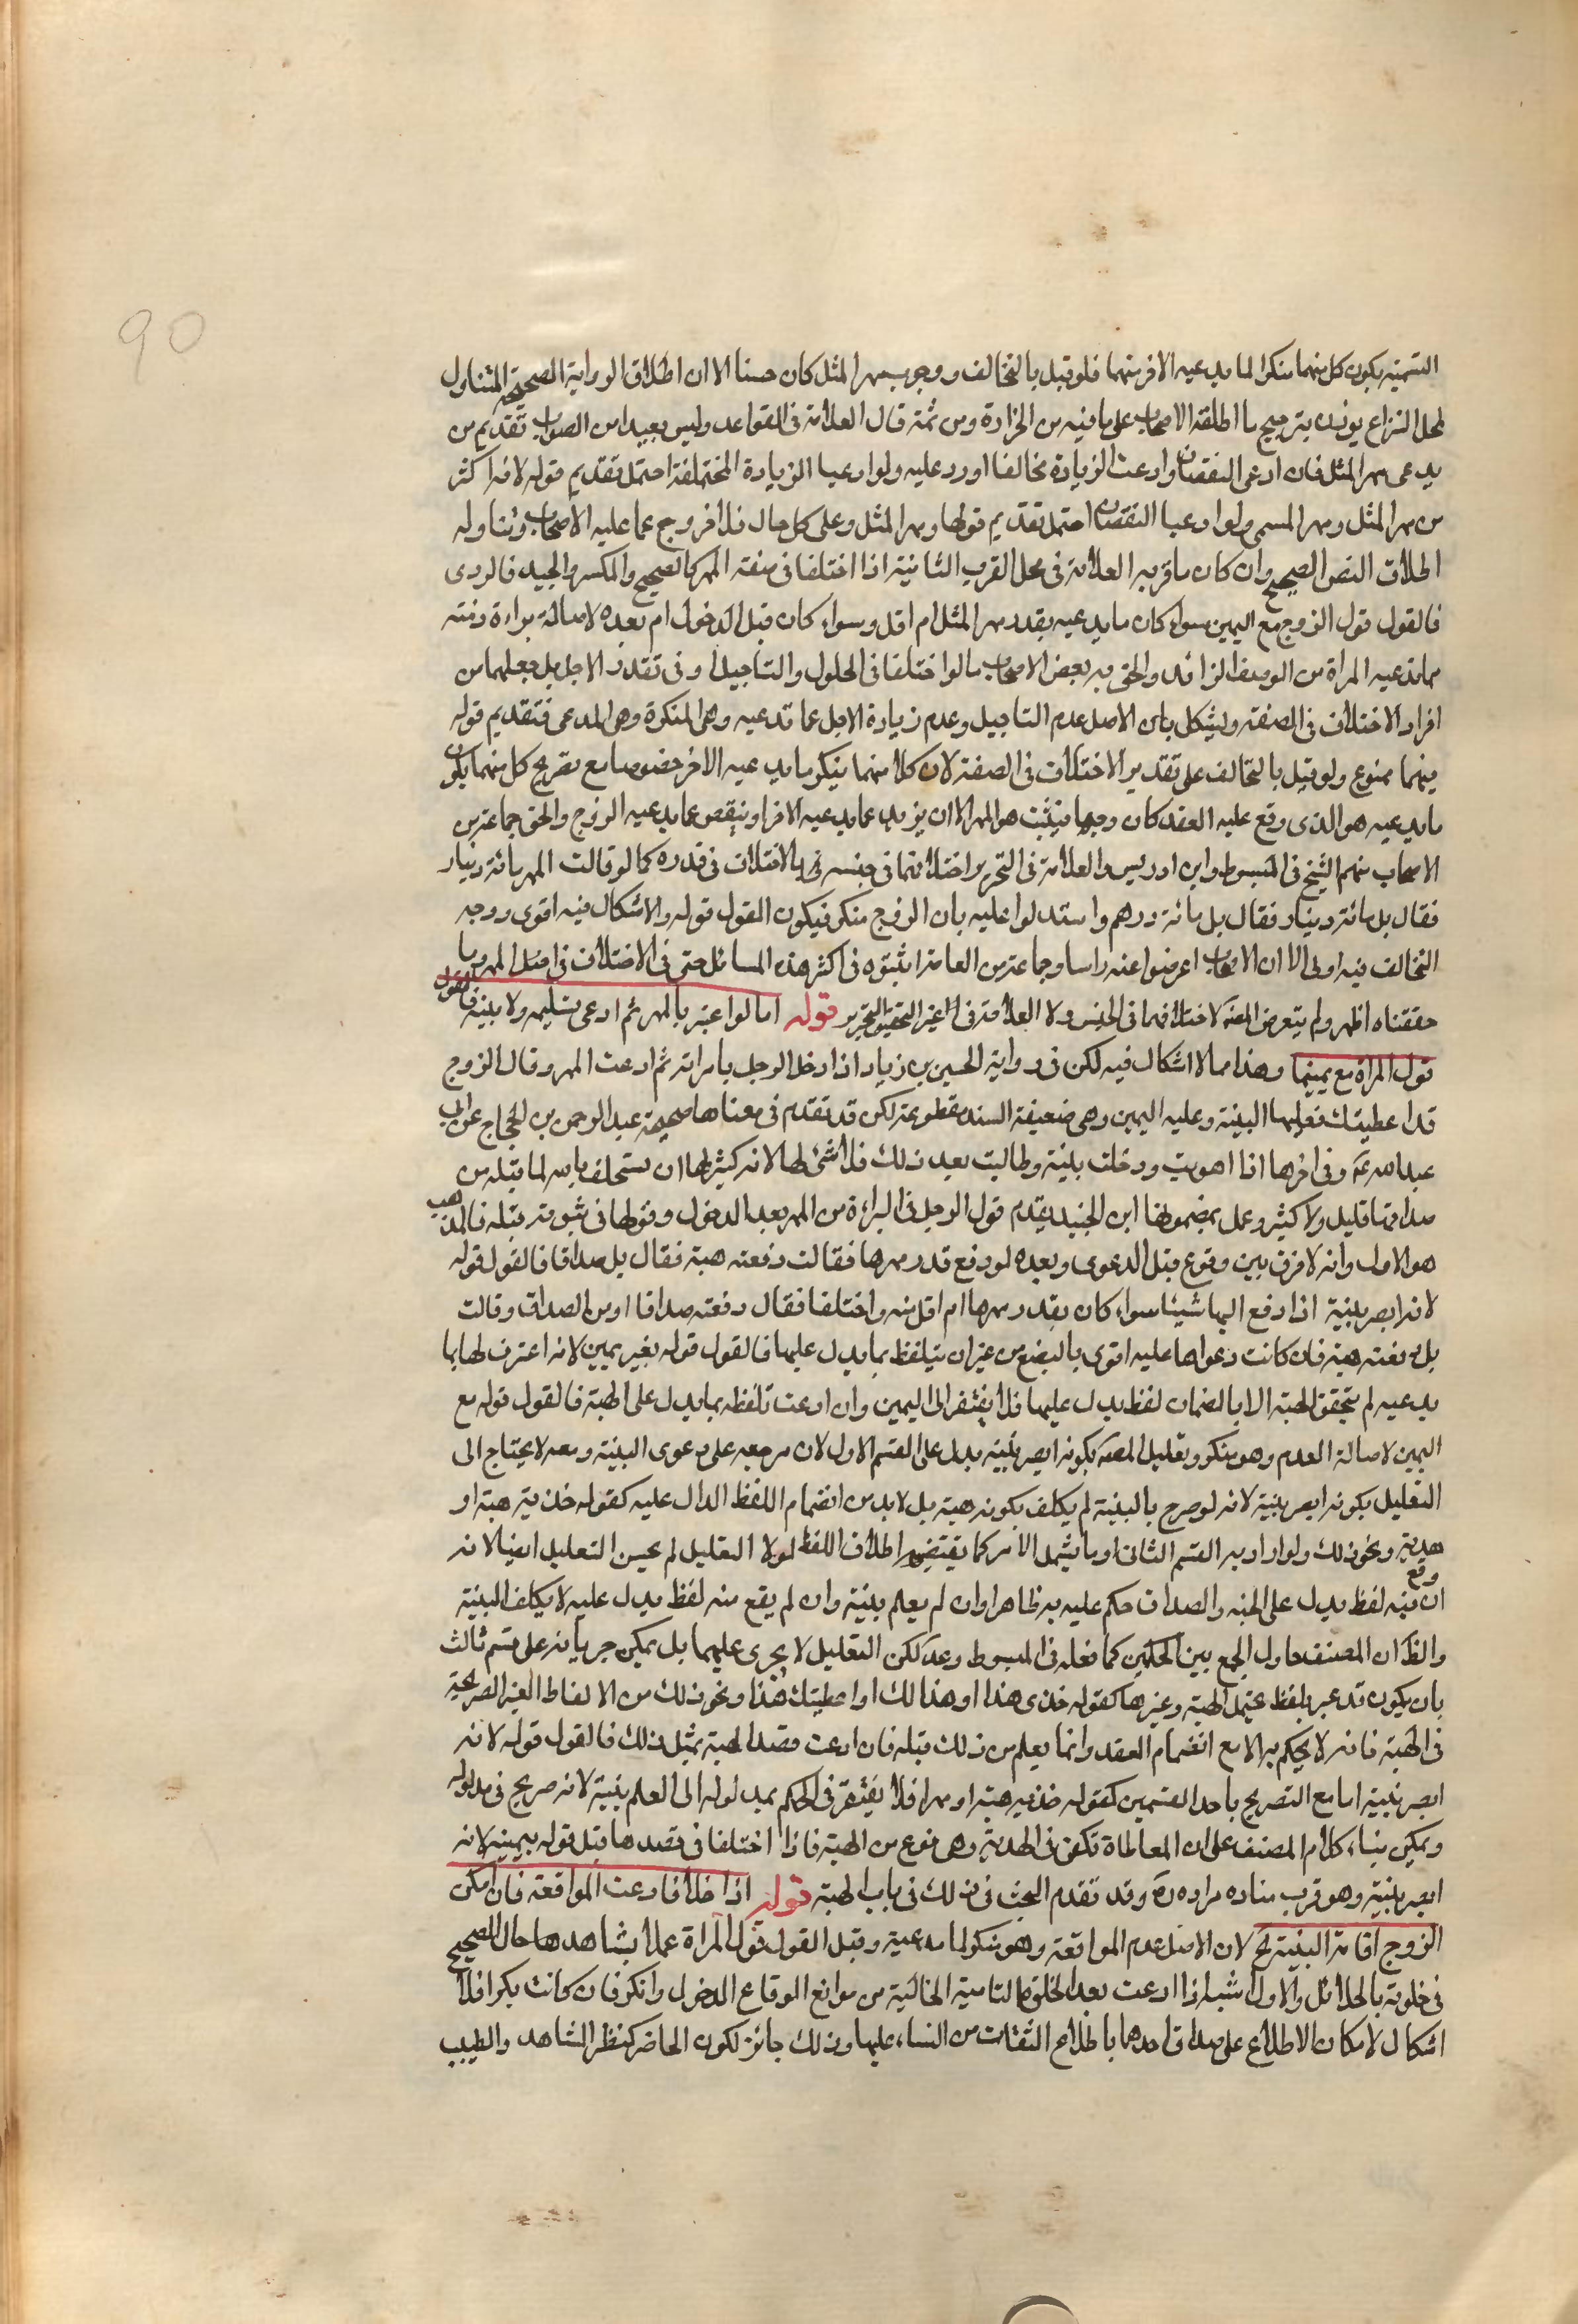 التسمية يكون كل منهما منكرا لما يدعيه الاخر منهما فلو قيل بالتخالف ووجوب مهر المثل كان حسنا الا ان اطلاق الرواية الصحيحة المتناول
لمحل النزاع يؤيد ترجيح ما اطلقه الاصحاب على ما فيه من الحزازة ومن ثمة قال العلامة في القواعد وليس بعيدا من الصواب تقديم من
يدعى مهر المثل فان ادعى النقصان وادعت الزيادة تخالفا ورد عليه ولو ادعيا الزيادة المختلفة احتمل تقديم قوله لانه اكثر
من مهر المثل ومهر المسمى ولو ادعيا النقصان احتمل تقديم قولها ومهر المثل وعلى كل حال فلا خروج عما عليه الاصحاب وتناوله
اطلاق النص الصحيح وان كان ما قربه العلامة في محل القرب الثانية اذا اختلفا في صفة المهر كالصحيح والمكسر والجيد فالردى
فالقول قول الزوج مع اليمين سواء كان ما يدعيه بقدر مهر المثل ام اقل وسواء كان قبل الدخول ام بعده لاصالة براءة ذمته
مما تدعيه المراة من الوصف الزائد والحق به بعض الاصحاب ما لو اختلفا في الحلول والتاجيل او في تقدر الاجل بل جعلهما من
افراد الاختلاف في الصفة ويشكل بان الاصل عدم التاجيل وعدم زيادة الاجل عما تدعيه وهي المنكرة وهو المدعى فتقديم قوله
فيهما ممنوع ولو قيل بالتخالف على تقدير الاختلاف في الصفة لان كلا منهما ينكر ما يدعيه الاخر خصوصا مع تصريح كل منهما بكون
ما يدعيه هو الذى وقع عليه العقد كان وجها فيثبت هو المهر الا ان يزيد عما يدعيه الاخر او ينقص عما يدعيه الزوج والحق جماعة من
الاصحاب منهم الشيخ في المبسوط وابن ادريس والعلامة في التحرير اختلافهما في جنسه بالاختلاف في قدره كما لو قالت المهر مائة دينار
فقال بل مائة دينار فقال بل مائة درهم واستدلوا عليه بان الزوج منكر فيكون القول قوله والاشكال فيه اقوى ووجه
التخالف فيه اولى الا ان الاصحاب اعرضوا عنه راسا وجماعة من العامة اثبتوه في اكثر هذه المسائل حتى في الاختلاف في اصل المهر وما
حققناه اظهر ولم يتعرض المصنف لاختلافهما في الجنس ولا العلامة في غير التحرير قوله اما لو اعترف بالمهر ثم ادعى تسليمه ولا بينة فالقول
قول المراة مع يمينها وهذا مما لا اشكال فيه لكن في رواية الحسين بن زياد اذا دخل الرجل بامراته ثم ادعت المهر وقال الزوج
قد اعطيتك فعليها البينة وعليه اليمين وهي ضعيفة السند مقطوعة لكن قد تقدم في معناها صحيحة عبد الرحمن بن الحجاج عن ابي
عبد الله ع وفي اخرها اذا اهديت ودخلت بيته وطالبت بعد ذلك فلا شئ لها لانه كثير لها ان يستحلف بالله لما قبله من
صداقها قليل ولا كثير وعمل بمضمونها ابن الجنيد يقدم قول الرجل في البراءة من المهر بعد الدخول وقولها في ثبوته قبله فالمذهب
هو الاول وانه لا فرق بين وقوع قبل الدعوى وبعده لو دفع قدر مهرها فقالت دفعته هبة فقال بل صداقا فالقول قوله
لانه ابصر بنيته اذا دفع اليها شيئا سواء كان بقدر مهرها ام اقل منه واختلفا فقال دفعته صداقا او من الصداق وقالت
بل دفعته هبة فان كانت دعواها عليه اقوى بالبضع من غير ان يتلفظ بما يدل عليها فالقول قوله بغير يمين لانه اعترف لها بما
يدعيه لم يتحقق الهبة الا بالضمان لفظ يدل عليها فلا يفتقر الى اليمين وان ادعت تلفظه بما يدل على الهبة فالقول قوله مع
اليمين لاصالة العدم وهو منكر وتعليل المصنف بكونه ابصر بنيته يدل على القسم الاول لان مرجعه على دعوى البينة ومعه لا يحتاج الى
التعليل بكونه ابصر بنيته لانه لو صرح بالبينة لم يكلف بكونه هبة بل لا بد من انضمام اللفظ الدال عليه كقوله خذيه هبة او
هدية ونحو ذلك ولو اراد به القسم الثانى او ما يشمل الامر كما يقتضيه اطلاق اللفظ لولا التعليل لم يحسن التعليل ايضا لانه
ان وقع منه لفظ يدل على الهبة والصداق حكم عليه به ظاهرا وان لم يعلم بنيته وان لم يقع منه لفظ يدل عليه لا يكلف البينة
والظ ان المصنف حاول الجمع بين الحكمين كما فعله في المبسوط وعد لكن التعليل لا يجرى عليهما بل يمكن جريانه على قسم ثالث
بان يكون قد عبر بلفظ يحتمل الهبة وغيرها كقوله خذى هذا او هذا لك او اعطيتك هذا ونحو ذلك من الالفاظ الغير الصريحة
في الهبة فانه لا يحكم به الا مع انضمام العقد وانما يعلم من ذلك قبله فان ادعت قصد الهبة بمثل ذلك فالقول قوله لانه
ابصر بنيته اما مع التصريح باحد القسمين كقوله خذيه هبة او مهرا فلا يفتقر في الحكم بمدلوله الى العلم بنيته لانه صريح في مدلوله
ويمكن بناء كلام المصنف على ان المعاطاة تكفى في الهدية وهى نوع من الهبة فاذا اختلفا في قصدها قبل قوله بيمينه لانه
ابصر بنيته وهو قرب مناده مراده ره وقد تقدم البحث في ذلك في باب الهبة قوله اذا خلا فادعت المواقعة فان امكن
الزوج اقامة البينة تح لان الاصل عدم المواقعة وهو منكر لما تدعيه وقيل القول قول المراة عملا بشاهد حال الصحيح
في خلوته بالحلائل والاول اشبه اذا ادعت بعد الخلوة التامة الخالية من موانع الوقاع الدخول وانكر فان كانت بكرا فلا
اشكال لامكان الاطلاع على صداق احدهما باطلاع الثقات من النساء عليها وذلك جائز لكون الحاضر كنظر الشاهد والطبيب
90